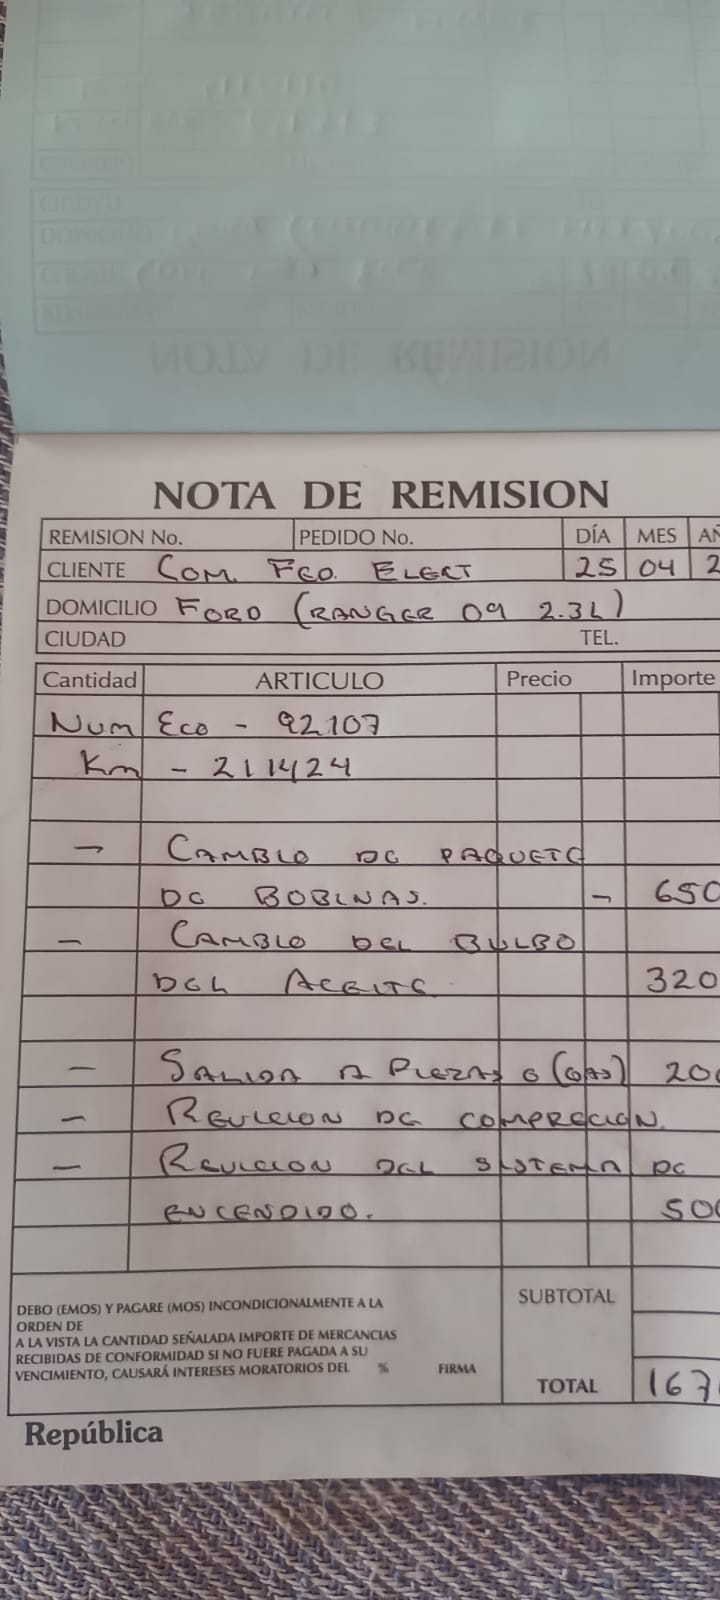 NOTA DE REMISION
REMISION No. PEDIDO No. DÍA MES AÑ
CLIENTE COM. FCO. ELECT 25 04 2
DOMICILIO FORD (RANGER 09 2.3L)
CIUDAD TEL.
Cantidad ARTICULO Precio Importe
Num Eco - 92107
Km - 211424
- CAMBIO DE PAQUETE
DE BOBINAS. - 650
- CAMBIO DEL BULBO
DEL ACEITE 320
- SALIDA A PIEZAS O (GAS) 200
- REVICION DE COMPRECION.
- REVICION DEL SISTEMA DE
ENCENDIDO. 500
DEBO (EMOS) Y PAGARE (MOS) INCONDICIONALMENTE A LA
ORDEN DE
A LA VISTA LA CANTIDAD SEÑALADA IMPORTE DE MERCANCIAS
RECIBIDAS DE CONFORMIDAD SI NO FUERE PAGADA A SU
VENCIMIENTO, CAUSARÁ INTERESES MORATORIOS DEL % FIRMA
SUBTOTAL
TOTAL 167
República